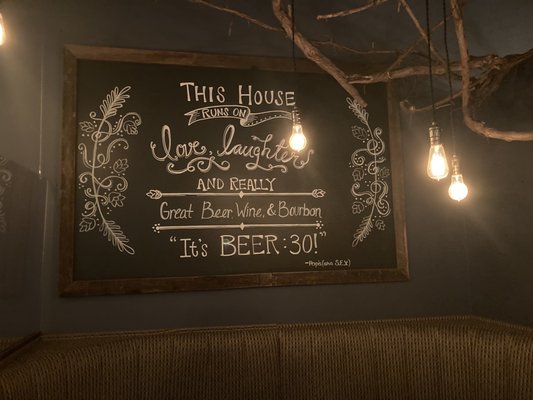 THIS HOUSE
RUNS ON
love, laughter
AND REALLY
Great Beer, Wine, & Bourbon
"It's BEER:30!"